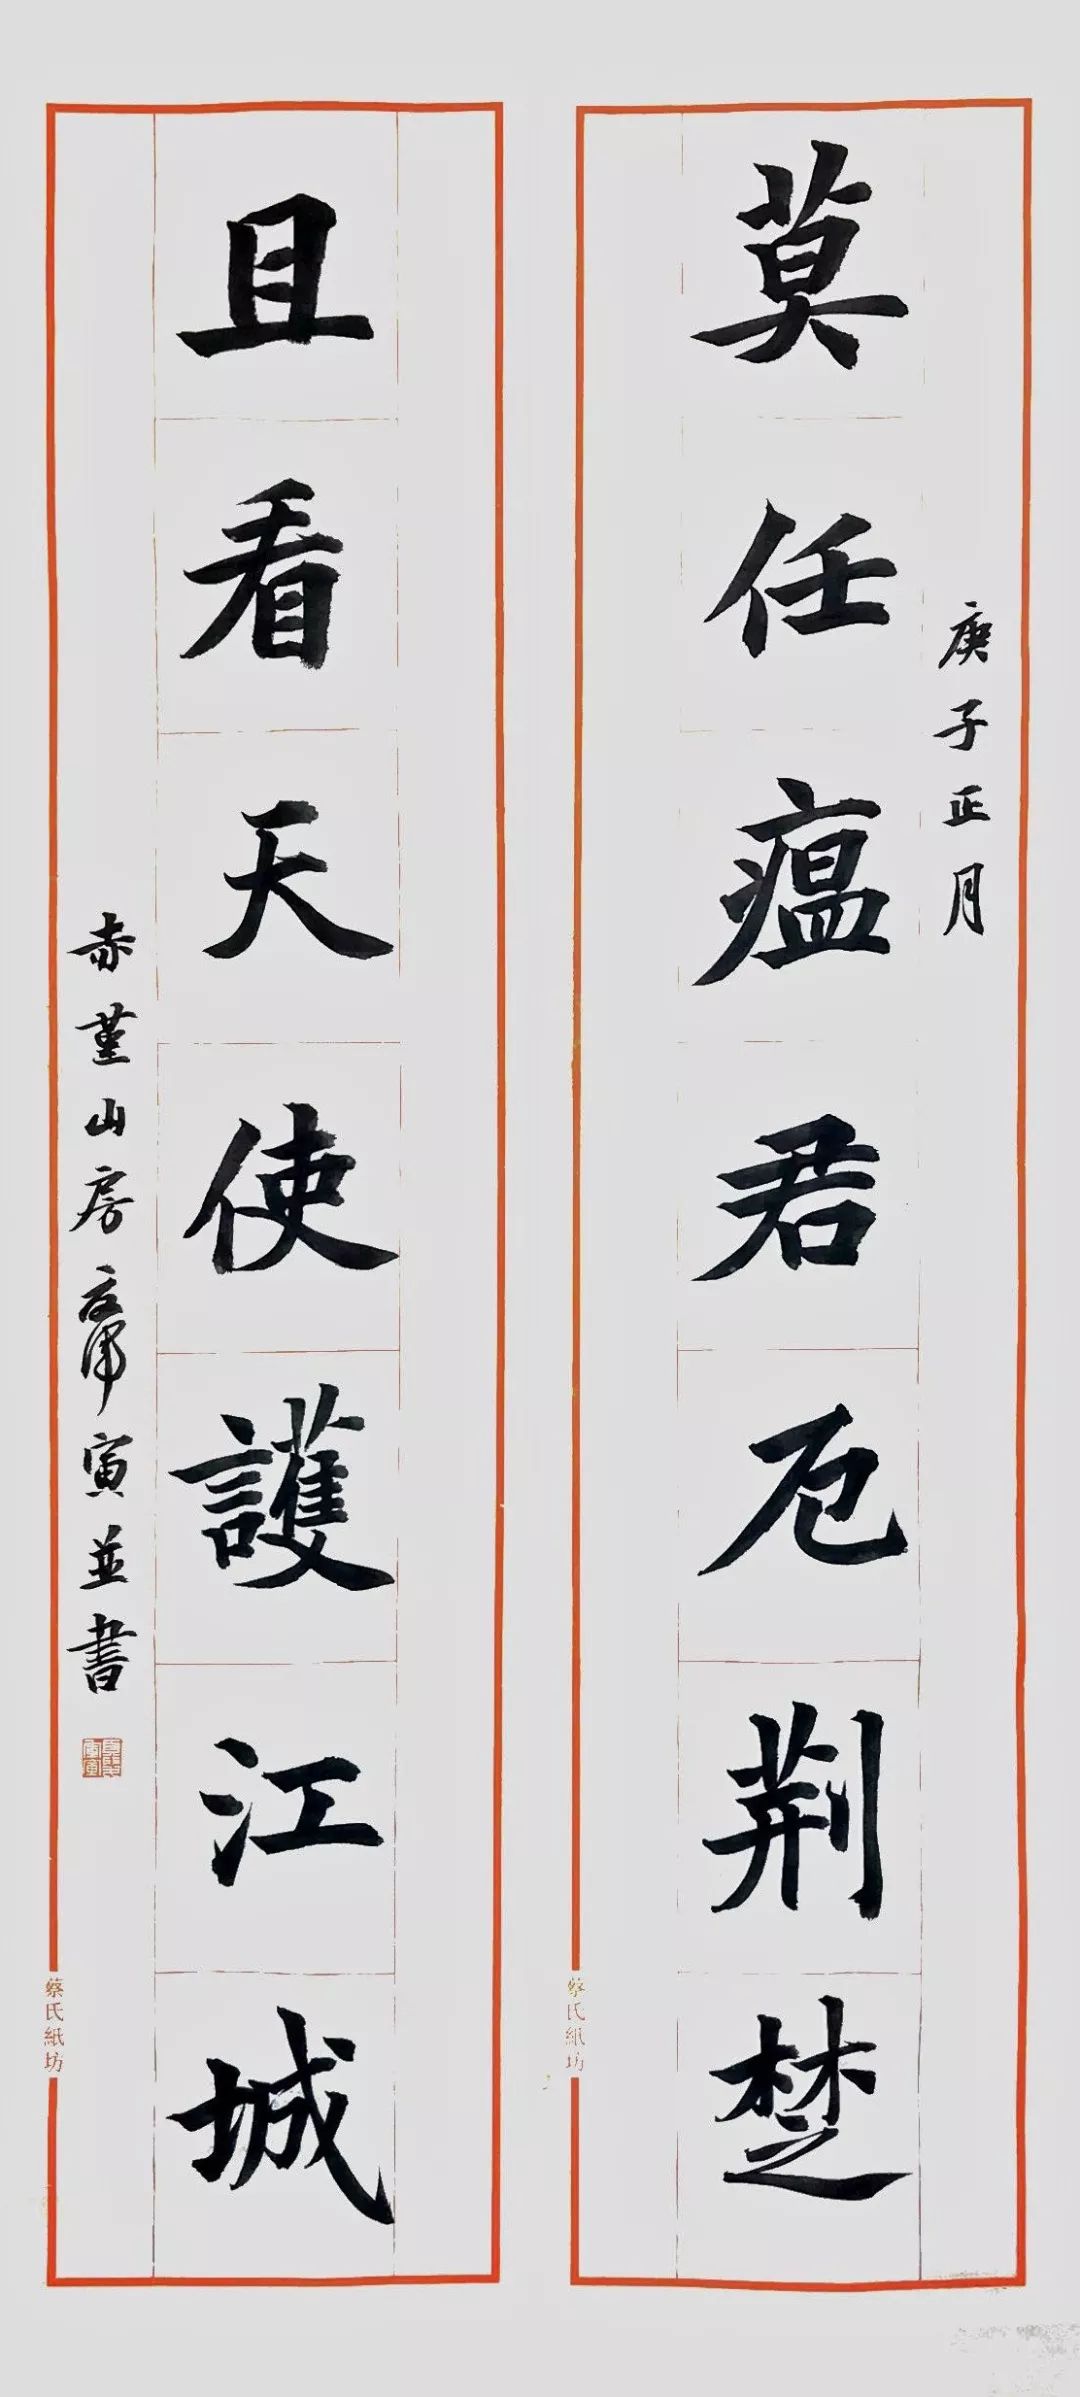 庚子正月
莫任瘟君厄荆楚
且看天使護江城
赤堇山房 寅並書
蔡氏紙坊
蔡氏紙坊